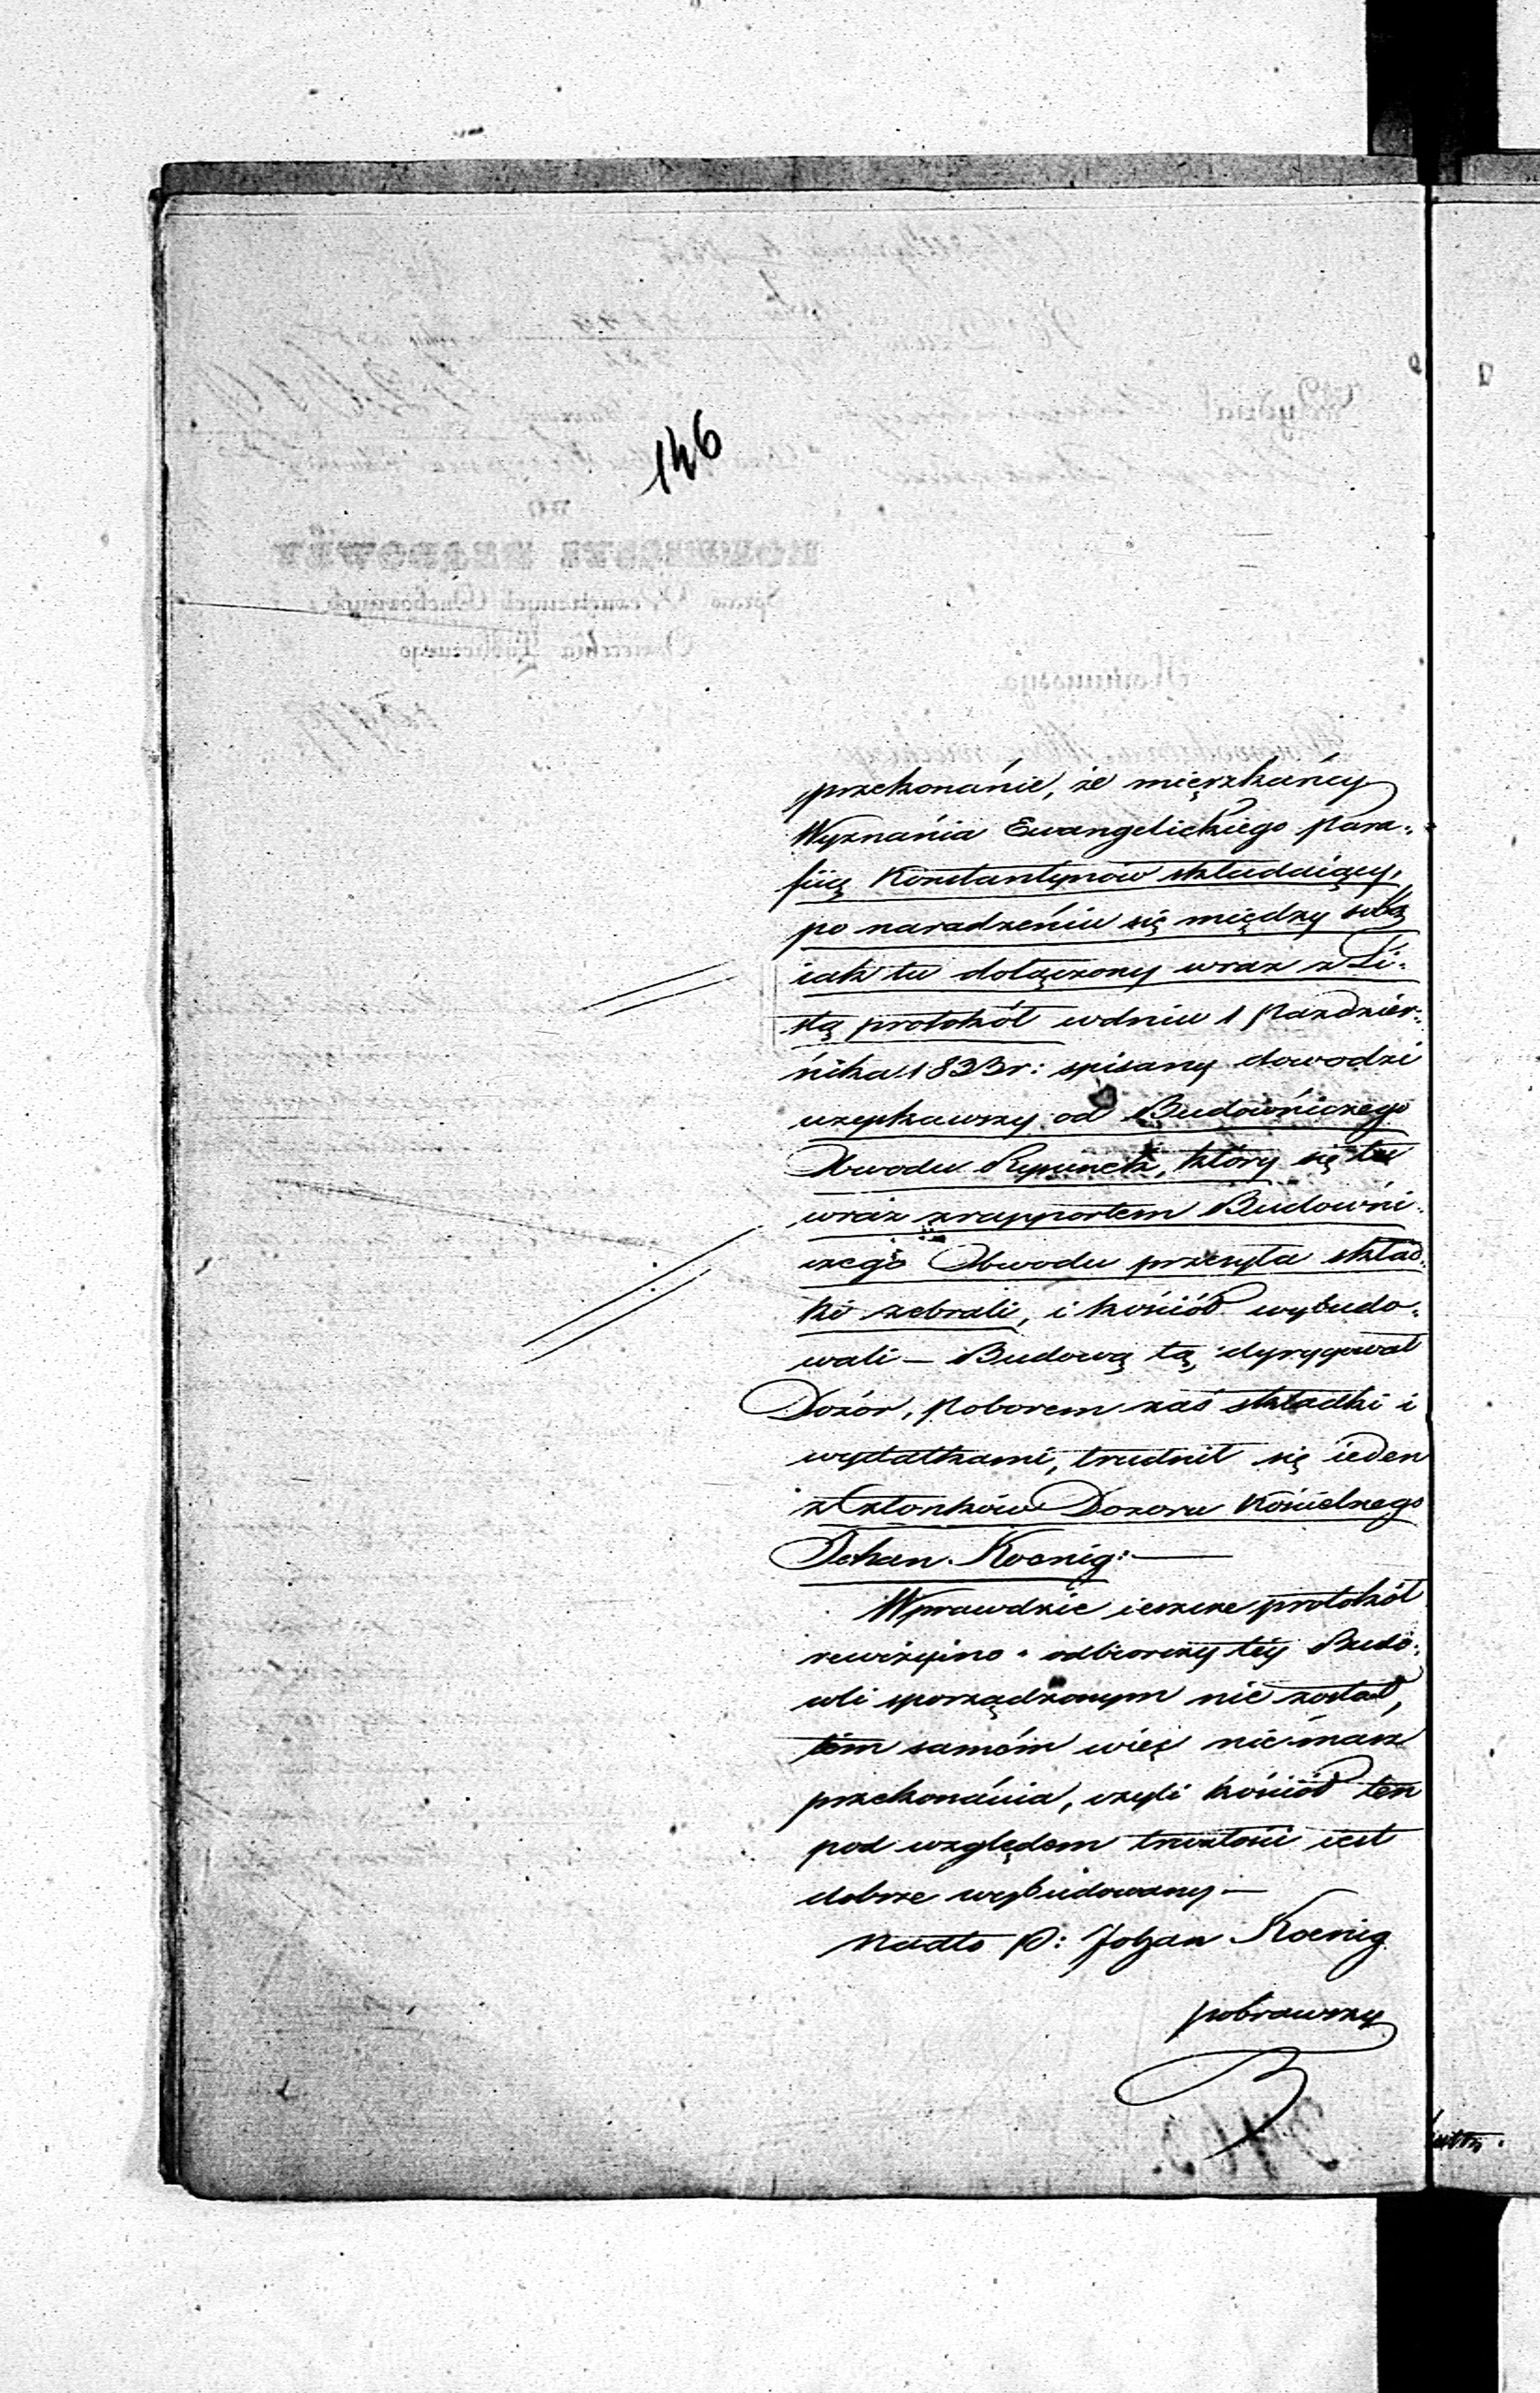 146
przekonanie, że mięszkańcy
Wyznania Ewangelickiego Para-
fiię Konstantynów składaiący,
po naradzeniu się między sobą
iak tu dołączony wraz z Li-
stą protokół wdniu 1 Paździer-
nika 1833 r: spisany dowodzi
uzyskawszy od Budowniczego
Obwodu Rysunek, który się tu
wraz zrapportem Budowni-
czego Obwodu przesyła skład-
ki zebrali, i kościół wybudo-
wali — Budową tą dyrygował
Dozór, Poborem zaś składki i
wydatkami, trudnił się ieden
z Członków Dozoru Kościelnego
Johan Koenig: —
Wprawdzie ieszcze protokół
rewizyino-odbiorczy téy Budo-
wli sporządzonym nie został,
tém samém więc nie masz
przekonania, czyli kościół ten
pod względem trwałości iest
dobrze wybudowany —
Nadto P: Johan Koenig
pobrawszy